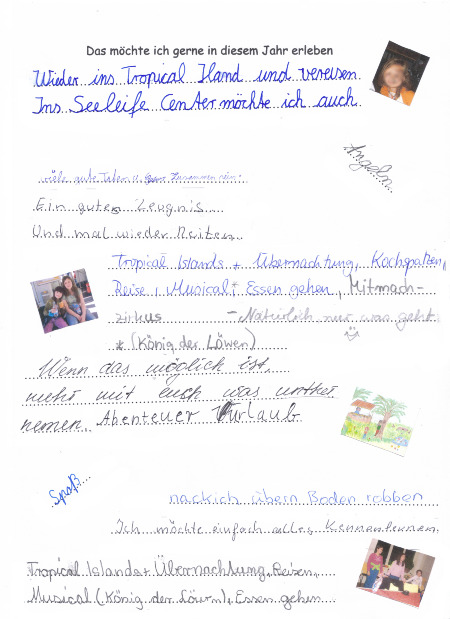 Das möchte ich gerne in diesem Jahr erleben
Wieder ins Tropical Iland und vereisen.
Ins Seeleife Center möchte ich auch.
Angeln...
viele gute Taten u. zusammen sein.
Ein gutes Zeugnis
Und mal wieder Reiten
Tropical Islands + Übernachtung, Kochspatzen,
Reise, Musical*, Essen gehen, Mitmach-
zirkus - Natürlich nur was geht.
* (König der Löwen)
Wenn das möglich ist,
mehr mit euch was unther
nemen. Abenteuer Uurlaub
Spaß...
nackich übern Boden robben
Ich möchte einfach alles Kennenlernen.
Tropical Islands + Übernachtung, Reisen,
Musical (König der Löwen), Essen gehen